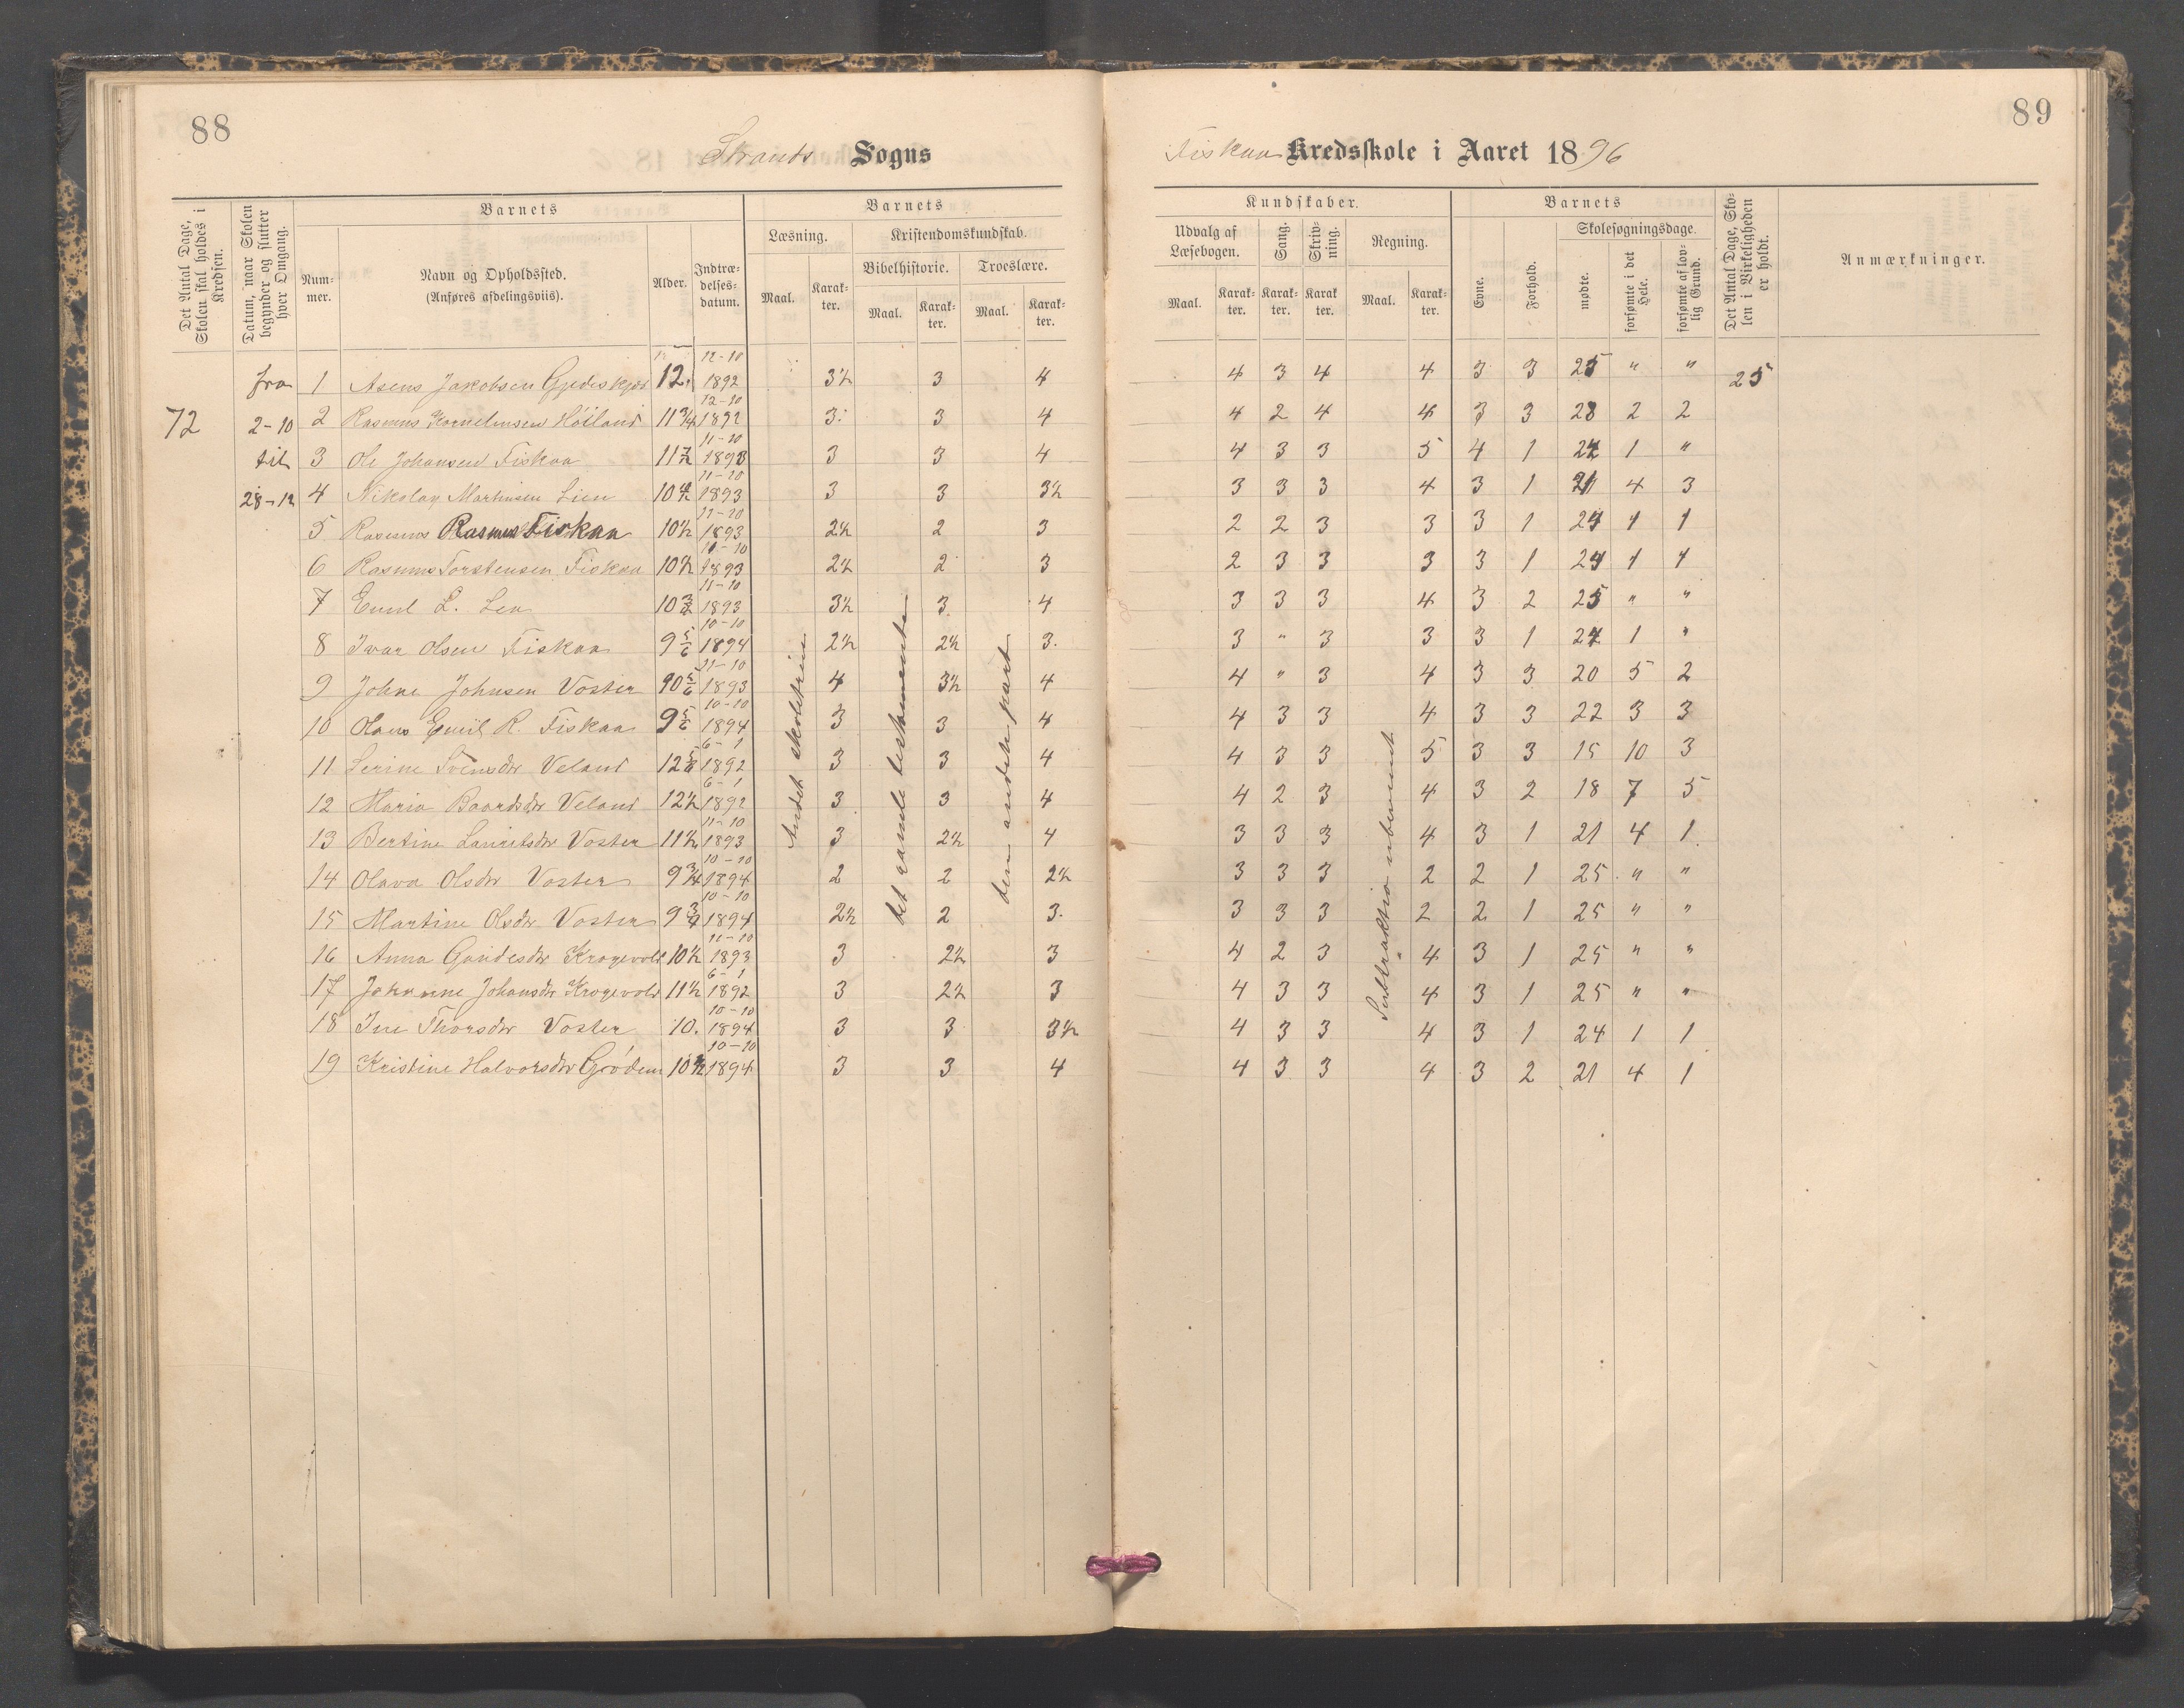 88
Strands Sogns
Det Antal Dage, Skolen skal holdes i Kredsen.
Datum, naar Skolen begynder og slutter hver Omgang.
Barnets
Nummer.
Navn og Opholdssted. (Anføres afdelingsviis).
Alder.
Indtrædelsesdatum.
Barnets
Læsning.
Kristendomskundskab.
Bibelhistorie.
Troeslære.
Maal. Karakter. Maal. Karakter. Maal. Karakter.
72
fra 2-10 til 28-12
1 Asens Jakobsen 12 12-10 1892 3½ 3 4
2 Rasmus Kornelinsen Höiland 11¾ 12-10 1892 3 3 4
3 Ole Johansen Fiskaa 11 11-10 1893 3 3 4
4 Nikolay Martinsen Lien 10 11-10 1893 3 3 3½
5 Rasmus Rasmus Fiskaa 10½ 11-10 1893 2½ 2 3
6 Rasmus Torstensen Fiskaa 10½ 11-10 1893 2½ 2 3
7 Emil L. Lea 10 11-10 1893 3½ 3 4
8 Ivar Olsen Fiskaa 9 5/6 10-10 1894 2½ 2½ 3.
9 Johne Johnsen Voster 10 5/6 11-10 1893 4 3½ 4
10 Olaus Emil R. Fiskaa 9 5/6 10-10 1894 3 3 4
11 Serine Svensdr Veland 12 5/6 6-1 1892 3 3 4
12 Maria Baardsdr Veland 12½ 6-1 1892 3 3 4
13 Bertine Lauritsdr Voster 11½ 11-10 1893 3 2½ 4
14 Olava Olsdr Voster 9¾ 10-10 1894 2 2 2½
15 Martine Olsdr Voster 9¾ 10-10 1894 2½ 2 3.
16 Anna Gundesdr Krogevold 10½ 11-10 1893 3 2½ 3
17 Johanne Johansdr Krogevold 11½ 6-1 1892 3 2½ 3
18 Ine Thorsdr Voster 10. 10-10 1894 3 3 3½
19 Kristine Halvorsdr Grödem 10½ 10-10 1894 3 3 4
Andet skoletrin
det gamle testamente
den anden part
89
Fiskaa Kredsskole i Aaret 1896
Kundskaber.
Udvalg af Læsebogen.
Sang.
Skrivning.
Regning.
Maal. Karakter. Karakter. Karakter. Maal. Karakter.
Barnets
Evne.
Forhold.
Skolesøgningsdage.
mødte.
forsømte i det Hele.
forsømte af lovlig Grund.
Det Antal Dage, Skolen i Virkeligheden er holdt.
Anmærkninger.
4 3 4 4 3 3 25 " " 25
4 2 4 4 3 3 23 2 2
4 3 3 5 4 1 24 1 "
3 3 3 4 3 1 21 4 3
2 2 3 3 3 1 24 1 1
2 3 3 3 3 1 24 1 1
3 3 3 4 3 2 25 " "
3 " 3 3 3 1 24 1 "
4 " 3 4 3 3 20 5 2
4 3 3 4 3 3 22 3 3
4 3 3 5 3 3 15 10 3
4 2 3 4 3 2 18 7 5
3 3 3 4 3 1 21 4 1
3 3 3 2 2 1 25 " "
3 3 3 2 2 1 25 " "
4 2 3 4 3 1 25 " "
4 3 3 4 3 1 25 " "
4 3 3 4 3 1 24 1 1
4 3 3 4 3 2 21 4 1
Subtraktion ubenævnt